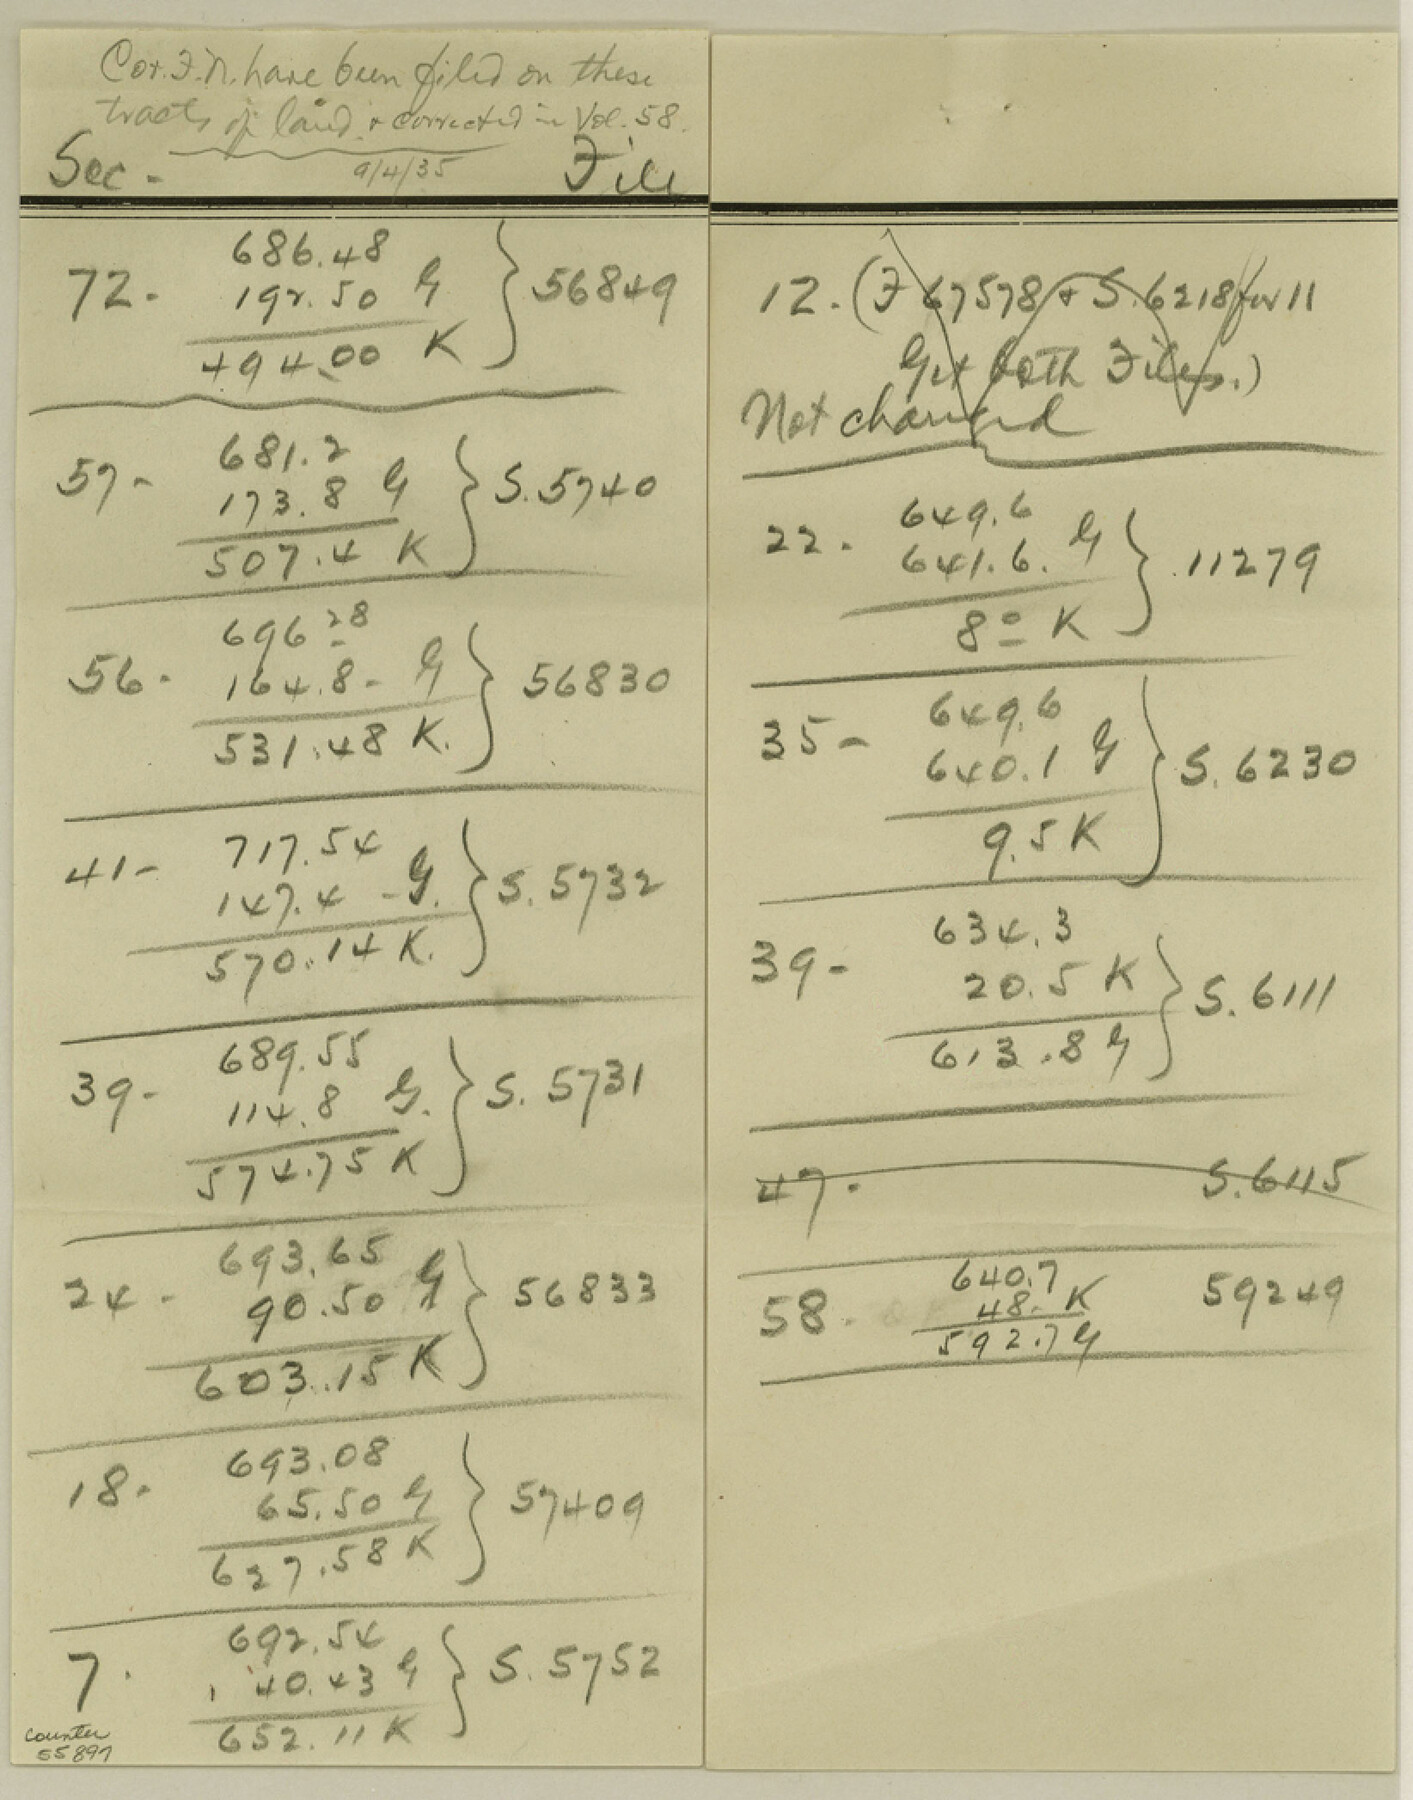 Cor. F.N. have been filed on these
tracts of land & corrected in Vol. 58.
9/4/35
Sec - File
686.48
72- 192.50 G } 56849
494.00 K
681.2
57- 173.8 G } S. 5740
507.4 K
696 28
56- 164.8- G } 56830
531.48 K.
717.54
41- 147.4 - G. } S. 5732
570.14 K.
689.55
39- 114.8 G. } S. 5731
574.75 K
693.65
24- 90.50 G } 56833
603.15 K
693.08
18- 65.50 G } 57409
627.58 K
692.54
7. 40.43 G } S. 5752
652.11 K
counter
55897
12. (F 67578 & S. 6218 for 11
Get both Files.)
Not changed
649.6
22. 641.6. G } 11279
8 0 K
649.6
35- 640.1 G } S. 6230
9.5 K
634.3
39- 20.5 K } S. 6111
613.8 G
47. S. 6115
640.7
58. 48- K 59249
592.7 G